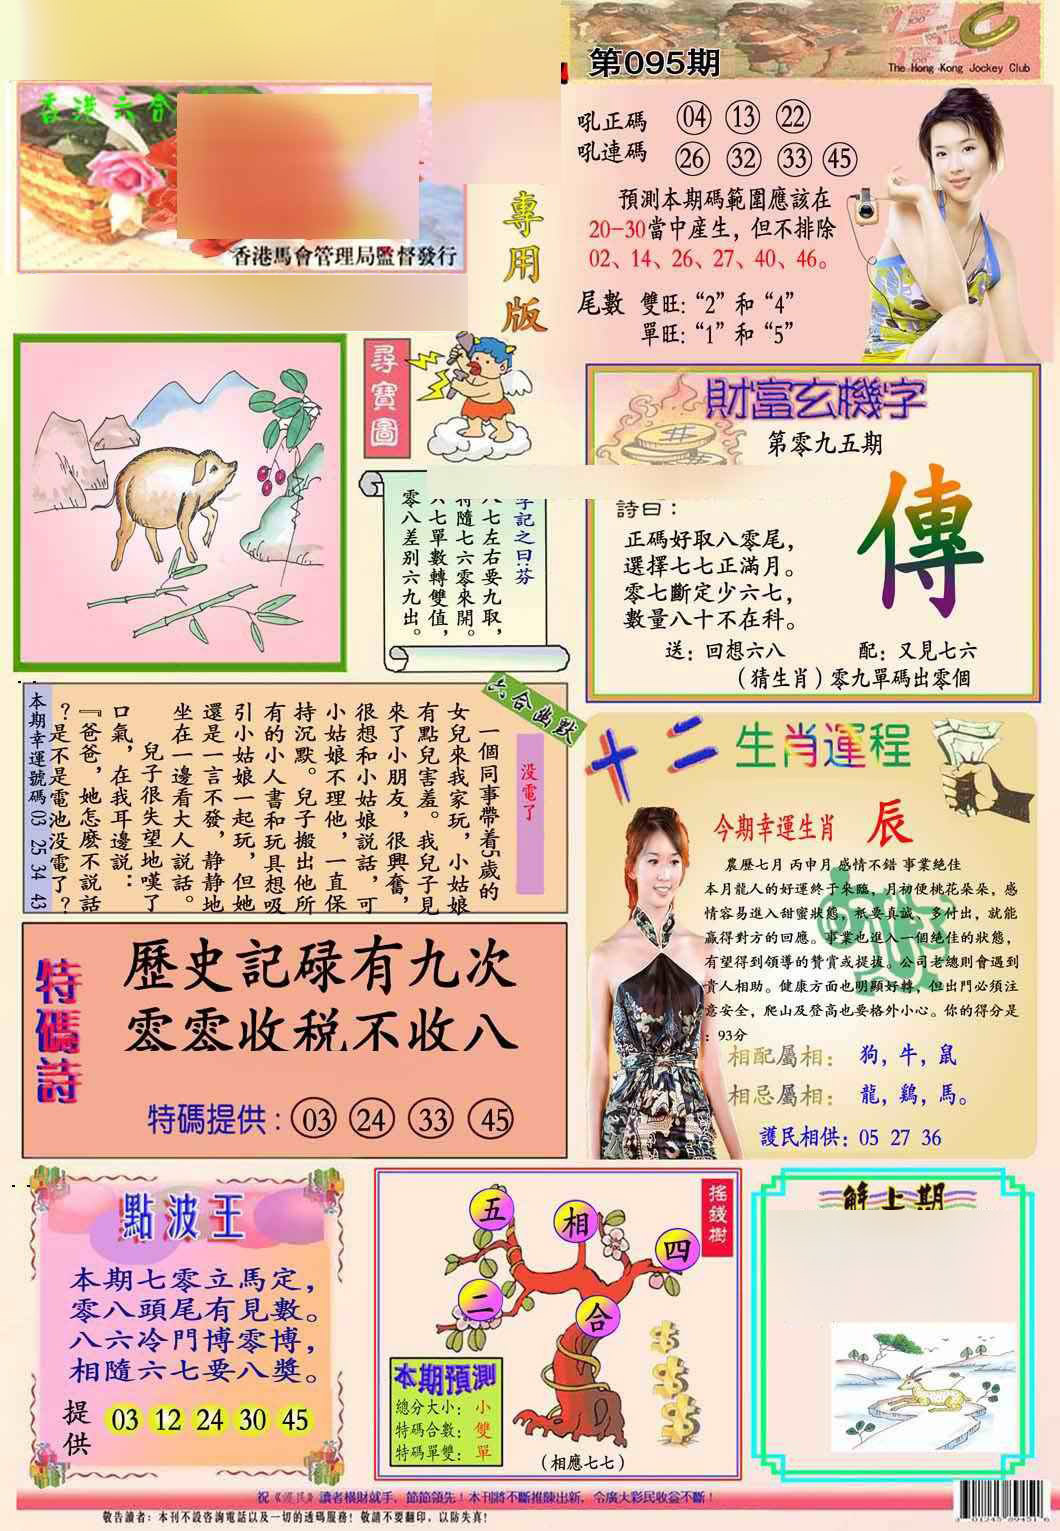 第095期
The Hong Kong Jockey Club
香港六合
香港馬會管理局監督發行
專用版
吼正碼 04 13 22
吼連碼 26 32 33 45
預測本期碼範圍應該在
20-30當中産生，但不排除
02、14、26、27、40、46。
尾數 雙旺：“2”和“4”
單旺：“1”和“5”
尋寶圖
字記之曰：芬
八七左右要九取，
特隨七六零來開。
六七單數轉雙值，
零八差别六九出。
財富玄機字
第零九五期
詩曰：
正碼好取八零尾，
選擇七七正滿月。
零七斷定少六七，
數量八十不在科。
傳
送：回想六八 配：又見七六
（猜生肖）零九單碼出零個
六合幽默
没電了
一個同事帶着5歲的
女兒來我家玩，小姑娘
有點兒害羞。我兒子見
來了小朋友，很興奮，
很想和小姑娘説話，可
小姑娘不理他，一直保
持沉默。兒子搬出他所
有的小人書和玩具想吸
引小姑娘一起玩，但她
還是一言不發，静静地
坐在一邊看大人説話。
兒子很失望地嘆了
口氣，在我耳邊説：
『爸爸，她怎麽不説話
？是不是電池没電了？
本期幸運號碼 03 25 34 43
十二生肖運程
今期幸運生肖 辰
農歷七月 丙申月 感情不錯 事業絶佳
本月龍人的好運終于來臨，月初便桃花朵朵，感
情容易進入甜蜜狀態，衹要真誠、多付出，就能
贏得對方的回應。事業也進入一個絶佳的狀態，
有望得到領導的贊賞或提拔。公司老總則會遇到
貴人相助。健康方面也明顯好轉，但出門必須注
意安全，爬山及登高也要格外小心。你的得分是
：93分
相配屬相：狗，牛，鼠
相忌屬相：龍，鷄，馬。
護民相供：05 27 36
特碼詩
歷史記碌有九次
零零收税不收八
特碼提供：03 24 33 45
點波王
本期七零立馬定，
零八頭尾有見數。
八六冷門博零博，
相隨六七要八獎。
提供 03 12 24 30 45
搖錢樹
五 相 四
二 合
本期預測
總分大小：小
特碼合數：雙
特碼單雙：單
（相應七七）
解上期
祝《護民》讀者橫財就手，節節領先！本刊將不斷推陳出新，令廣大彩民收益不斷！
敬告讀者：本刊不設咨詢電話以及一切的透碼服務！敬請不要翻印，以防失真！